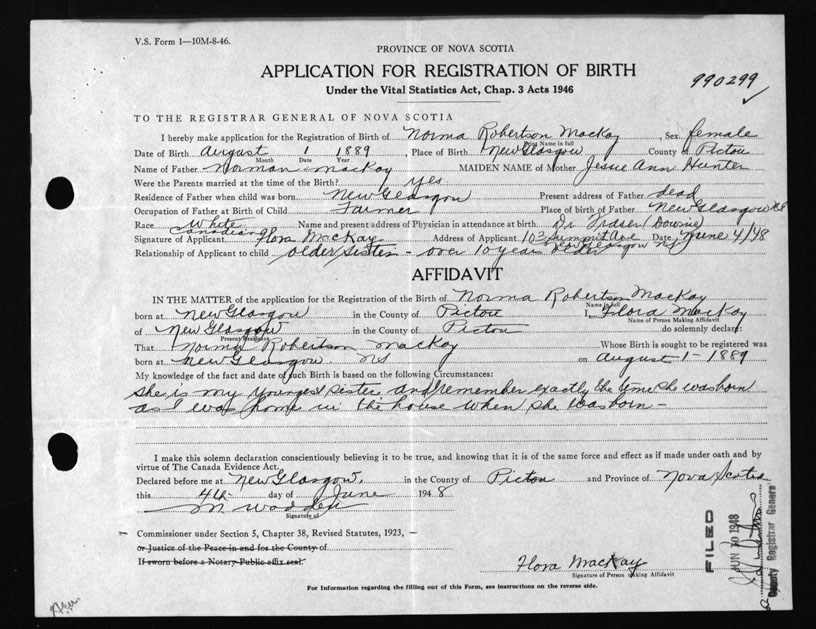 V.S. Form 1—10M-8-46.
PROVINCE OF NOVA SCOTIA
APPLICATION FOR REGISTRATION OF BIRTH
Under the Vital Statistics Act, Chap. 3 Acts 1946
990299
TO THE REGISTRAR GENERAL OF NOVA SCOTIA
I hereby make application for the Registration of Birth of Norma Robertson MacKay, Sex female
Print Name in full
Date of Birth August 1 1889, Place of Birth New Glasgow County of Pictou
Month Date Year
Name of Father Norman MacKay MAIDEN NAME of Mother Jessie Ann Hunter
Were the Parents married at the time of the Birth? yes
Residence of Father when child was born New Glasgow Present address of Father dead
Occupation of Father at Birth of Child Farmer Place of birth of Father New Glasgow NS
Race White Canadian Name and present address of Physician in attendance at birth Dr Fraser (Downie)
Signature of Applicant Flora MacKay Address of Applicant 103 Summit Ave New Glasgow NS Date June 4/48
Relationship of Applicant to child older sister - over 10 years older
AFFIDAVIT
IN THE MATTER of the application for the Registration of the Birth of Norma Robertson MacKay
Name in full
born at New Glasgow in the County of Pictou I, Flora MacKay
Name of Person Making Affidavit
of New Glasgow in the County of Pictou do solemnly declare:
Present Residence
That Norma Robertson MacKay Whose Birth is sought to be registered was
born at New Glasgow NS on August 1 - 1889
My knowledge of the fact and date of such Birth is based on the following Circumstances:
She is my youngest sister and remember exactly the time she was born
as I was home in the house when she was born -
I make this solemn declaration conscientiously believing it to be true, and knowing that it is of the same force and effect as if made under oath and by
virtue of The Canada Evidence Act.
Declared before me at New Glasgow, in the County of Pictou and Province of Nova Scotia
this 4th day of June 1948
M Wadden
Signature of
Commissioner under Section 5, Chapter 38, Revised Statutes, 1923, —
or Justice of the Peace in and for the County of
If sworn before a Notary Public affix seal.
Flora MacKay
Signature of Person making Affidavit
For Information regarding the filling out of this Form, see instructions on the reverse side.
FILED
JUN 10 1948
Deputy Registrar General